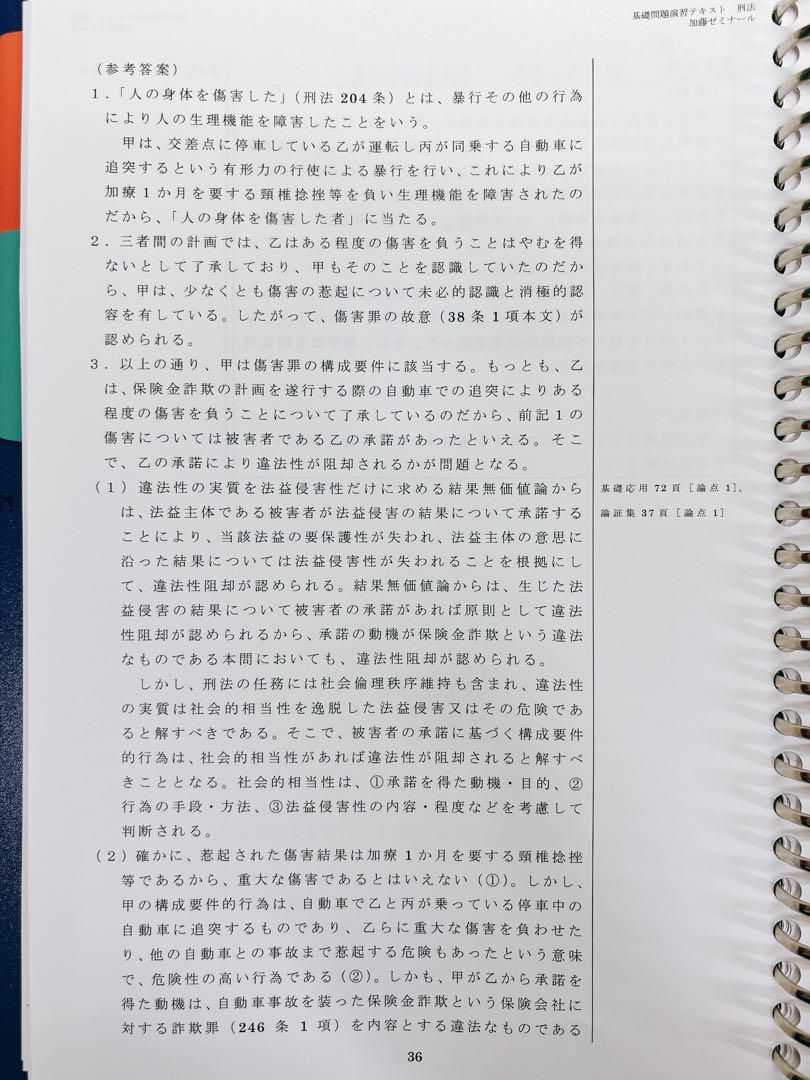 基礎問題演習テキスト 刑法
加藤ゼミナール
(参考答案)
1.「人の身体を傷害した」(刑法204条)とは、暴行その他の行為
により人の生理機能を障害したことをいう。
甲は、交差点に停車している乙が運転し丙が同乗する自動車に
追突するという有形力の行使による暴行を行い、これにより乙が
加療1か月を要する頸椎捻挫等を負い生理機能を障害されたの
だから、「人の身体を傷害した者」に当たる。
2.三者間の計画では、乙はある程度の傷害を負うことはやむを得
ないとして了承しており、甲もそのことを認識していたのだか
ら、甲は、少なくとも傷害の惹起について未必的認識と消極的認
容を有している。したがって、傷害罪の故意(38条1項本文)が
認められる。
3.以上の通り、甲は傷害罪の構成要件に該当する。もっとも、乙
は、保険金詐欺の計画を遂行する際の自動車での追突によりある
程度の傷害を負うことについて了承しているのだから、前記1の
傷害については被害者である乙の承諾があったといえる。そこ
で、乙の承諾により違法性が阻却されるかが問題となる。
(1)違法性の実質を法益侵害性だけに求める結果無価値論から
は、法益主体である被害者が法益侵害の結果について承諾する
ことにより、当該法益の要保護性が失われ、法益主体の意思に
沿った結果については法益侵害性が失われることを根拠にし
て、違法性阻却が認められる。結果無価値論からは、生じた法
益侵害の結果について被害者の承諾があれば原則として違法
性阻却が認められるから、承諾の動機が保険金詐欺という違法
なものである本問においても、違法性阻却が認められる。
しかし、刑法の任務には社会倫理秩序維持も含まれ、違法性
の実質は社会的相当性を逸脱した法益侵害又はその危険であ
ると解すべきである。そこで、被害者の承諾に基づく構成要件
的行為は、社会的相当性があれば違法性が阻却されると解すべ
きこととなる。社会的相当性は、①承諾を得た動機・目的、②
行為の手段・方法、③法益侵害性の内容・程度などを考慮して
判断される。
(2)確かに、惹起された傷害結果は加療1か月を要する頸椎捻挫
等であるから、重大な傷害であるとはいえない(①)。しかし、
甲の構成要件的行為は、自動車で乙と丙が乗っている停車中の
自動車に追突するものであり、乙らに重大な傷害を負わせた
り、他の自動車との事故まで惹起する危険もあったという意味
で、危険性の高い行為である(②)。しかも、甲が乙から承諾を
得た動機は、自動車事故を装った保険金詐欺という保険会社に
対する詐欺罪(246条1項)を内容とする違法なものである
基礎応用72頁[論点1]、
論証集37頁[論点1]
36